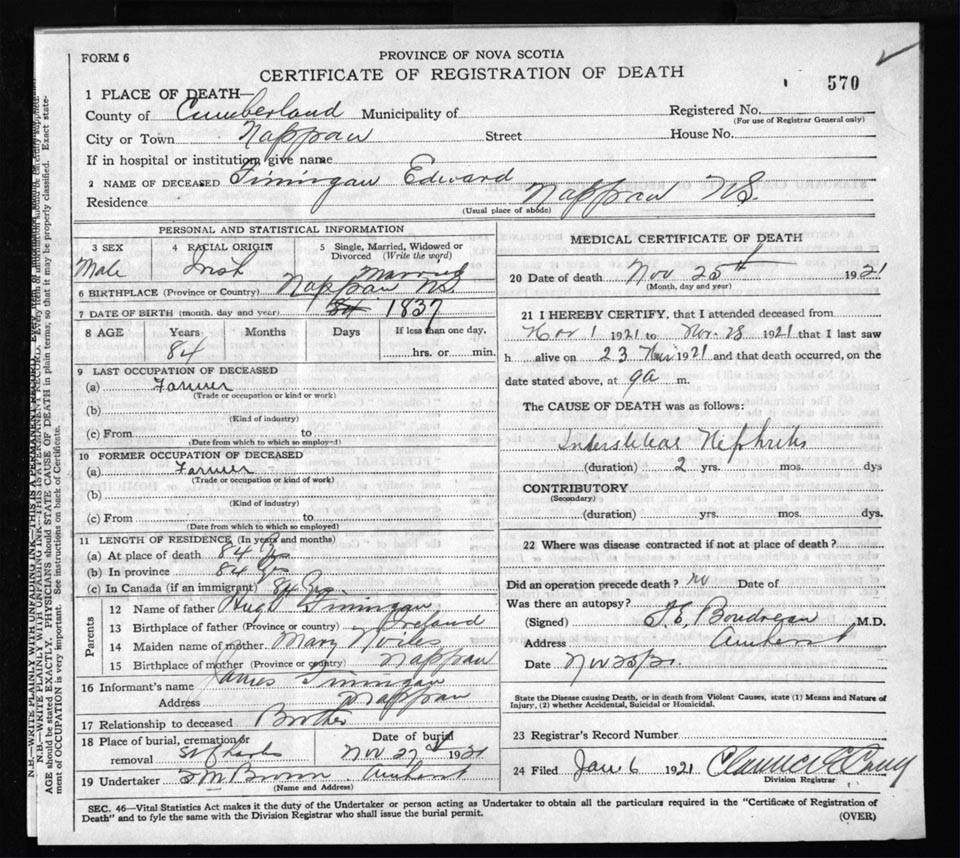 FORM 6
PROVINCE OF NOVA SCOTIA
CERTIFICATE OF REGISTRATION OF DEATH
570
1 PLACE OF DEATH—
County of Cumberland Municipality of
Registered No.
(For use of Registrar General only)
City or Town Nappan Street House No.
If in hospital or institution, give name
2 NAME OF DECEASED Finnigan Edward
Residence Nappan NS.
(Usual place of abode)
PERSONAL AND STATISTICAL INFORMATION
3 SEX 4 RACIAL ORIGIN 5 Single, Married, Widowed or Divorced (Write the word)
Male Irish Married
6 BIRTHPLACE (Province or Country) Nappan NS.
7 DATE OF BIRTH (month, day and year) 1837
8 AGE Years Months Days If less than one day,
84 hrs. or min.
9 LAST OCCUPATION OF DECEASED
(a) Farmer
(Trade or occupation or kind of work)
(b)
(Kind of industry)
(c) From to
(Date from which to which so employed)
10 FORMER OCCUPATION OF DECEASED
(a) Farmer
(Trade or occupation or kind of work)
(b)
(Kind of industry)
(c) From to
(Date from which to which so employed)
11 LENGTH OF RESIDENCE (In years and months)
(a) At place of death 84 Yrs
(b) In province 84 Yrs
(c) In Canada (if an immigrant) 84 Yrs
Parents
12 Name of father Hugh Finnigan
13 Birthplace of father (Province or country) Ireland
14 Maiden name of mother Mary
15 Birthplace of mother (Province or country) Nappan
16 Informant's name James Finnigan
Address Nappan
17 Relationship to deceased Brother
18 Place of burial, cremation or removal St Charles
Date of burial Nov 27 1921
19 Undertaker Brown Amherst
(Name and Address)
MEDICAL CERTIFICATE OF DEATH
20 Date of death Nov 25th 1921
(Month, day and year)
21 I HEREBY CERTIFY, that I attended deceased from
Nov 1 1921 to Nov. 1921 that I last saw
h alive on 23 Nov 1921 and that death occurred, on the
date stated above, at 9a m.
The CAUSE OF DEATH was as follows:
Interstitial Nephritis
(duration) 2 yrs. mos. dys
CONTRIBUTORY
(Secondary)
(duration) yrs. mos. dys.
22 Where was disease contracted if not at place of death?
Did an operation precede death? no Date of
Was there an autopsy?
(Signed) Boudreau M.D.
Address Amherst
Date Nov
State the Disease causing Death, or in death from Violent Causes, state (1) Means and Nature of
Injury, (2) whether Accidental, Suicidal or Homicidal.
23 Registrar's Record Number
24 Filed Jan 6 1921 Clarence
Division Registrar
SEC. 46—Vital Statistics Act makes it the duty of the Undertaker or person acting as Undertaker to obtain all the particulars required in the "Certificate of Registration of
Death" and to fyle the same with the Division Registrar who shall issue the burial permit.
(OVER)
N.B.—WRITE PLAINLY WITH UNFADING INK—THIS IS A PERMANENT RECORD.
AGE should be stated EXACTLY. PHYSICIANS should STATE CAUSE OF DEATH in plain terms, so that it may be properly classified. Exact state-
ment of OCCUPATION is very important. See instructions on back of Certificate.